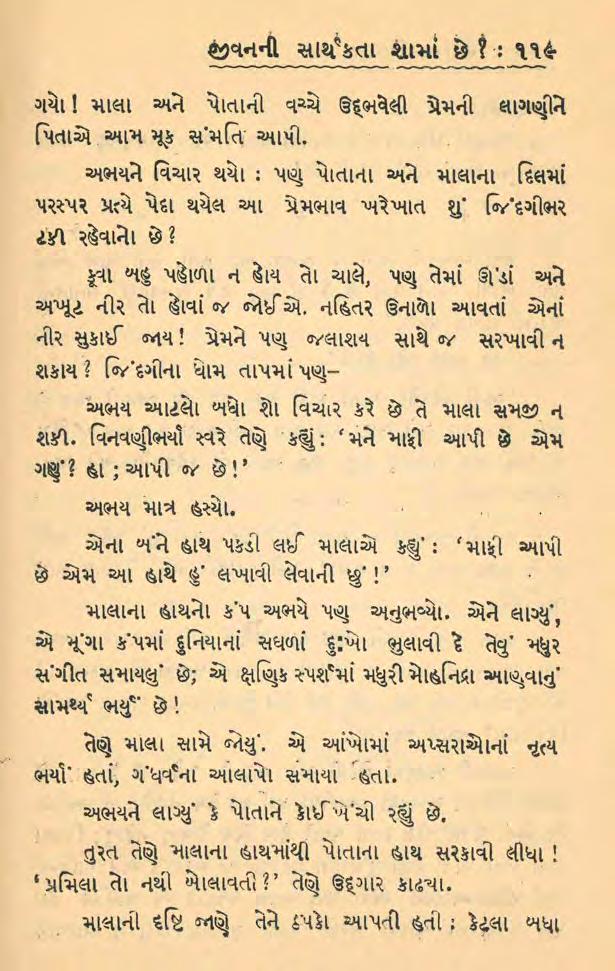 જીવનની સાર્થકતા શામાં છે? : ૧૧૯
ગયો! માલા અને પોતાની વચ્ચે ઉદ્દભવેલી પ્રેમની લાગણીને
પિતાએ આમ મૂક સંમતિ આપી.
અભયને વિચાર થયો : પણ પોતાના અને માલાના દિલમાં
પરસ્પર પ્રત્યે પેદા થયેલ આ પ્રેમભાવ ખરેખાત શું જિંદગીભર
ટકી રહેવાનો છે?
કૂવા બહુ પહોળા ન હોય તો ચાલે, પણ તેમાં ઊંડાં અને
અખૂટ નીર તો હોવાં જ જોઈએ. નહિતર ઉનાળો આવતાં એનાં
નીર સુકાઈ જાય! પ્રેમને પણ જલાશય સાથે જ સરખાવી ન
શકાય? જિંદગીના ધોમ તાપમાં પણ–
અભય આટલો બધો શો વિચાર કરે છે તે માલા સમજી ન
શકી. વિનવણીભર્યા સ્વરે તેણે કહ્યું: ‘મને માફી આપી છે એમ
ગણું? હા ; આપી જ છે!’
અભય માત્ર હસ્યો.
એના બંને હાથ પકડી લઈ માલાએ કહ્યું : ‘માફી આપી
છે એમ આ હાથે હું લખાવી લેવાની છું!’
માલાના હાથનો કંપ અભયે પણ અનુભવ્યો. એને લાગ્યું,
એ મૂંગા કંપમાં દુનિયાનાં સઘળાં દુ:ખો ભુલાવી દે તેવું મધુર
સંગીત સમાયલું છે; એ ક્ષણિક સ્પર્શમાં મધુરી મોહનિદ્રા આણવાનું
સામર્થ્ય ભર્યું છે!
તેણે માલા સામે જોયું. એ આંખોમાં અપ્સરાઓનાં નૃત્ય
ભર્યાં હતાં, ગંધર્વના આલાપો સમાયા હતા.
અભયને લાગ્યું કે પોતાને કોઈ ખેંચી રહ્યું છે.
તુરત તેણે માલાના હાથમાંથી પોતાના હાથ સરકાવી લીધા!
‘પ્રમિલા તો નથી બોલાવતી?’ તેણે ઉદ્ગાર કાઢ્યા.
માલાની દૃષ્ટિ જાણે તેને ઠપકો આપતી હતી : કેટલા બધા